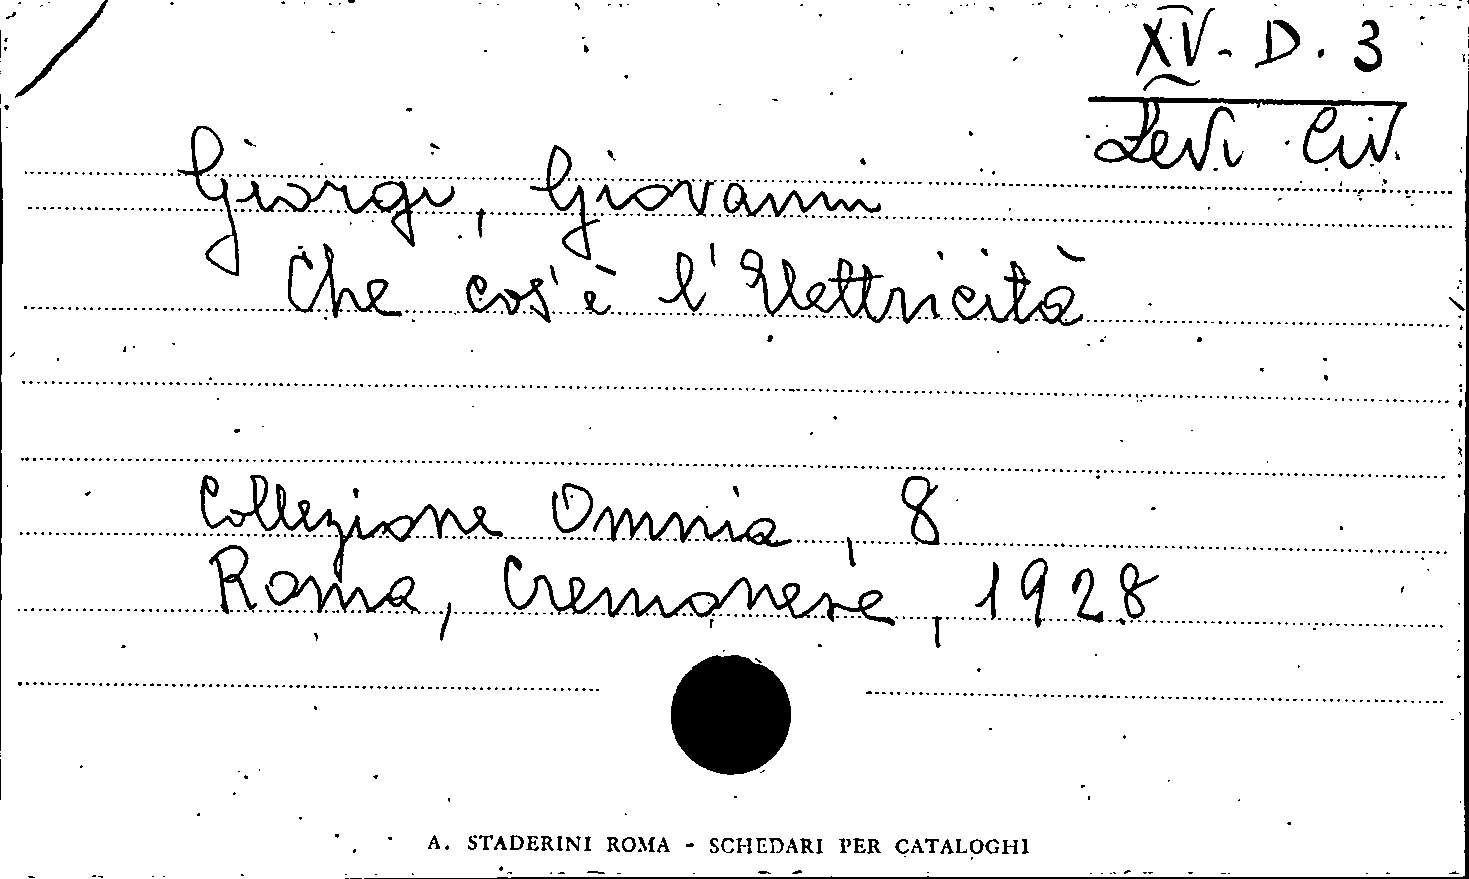 XV - D. 3
Levi Civ.
Giorgi, Giovanni
Che cos'è l'Elettricità
Collezione Omnia, 8
Roma, Cremonese, 1928
A. STADERINI ROMA - SCHEDARI PER CATALOGHI